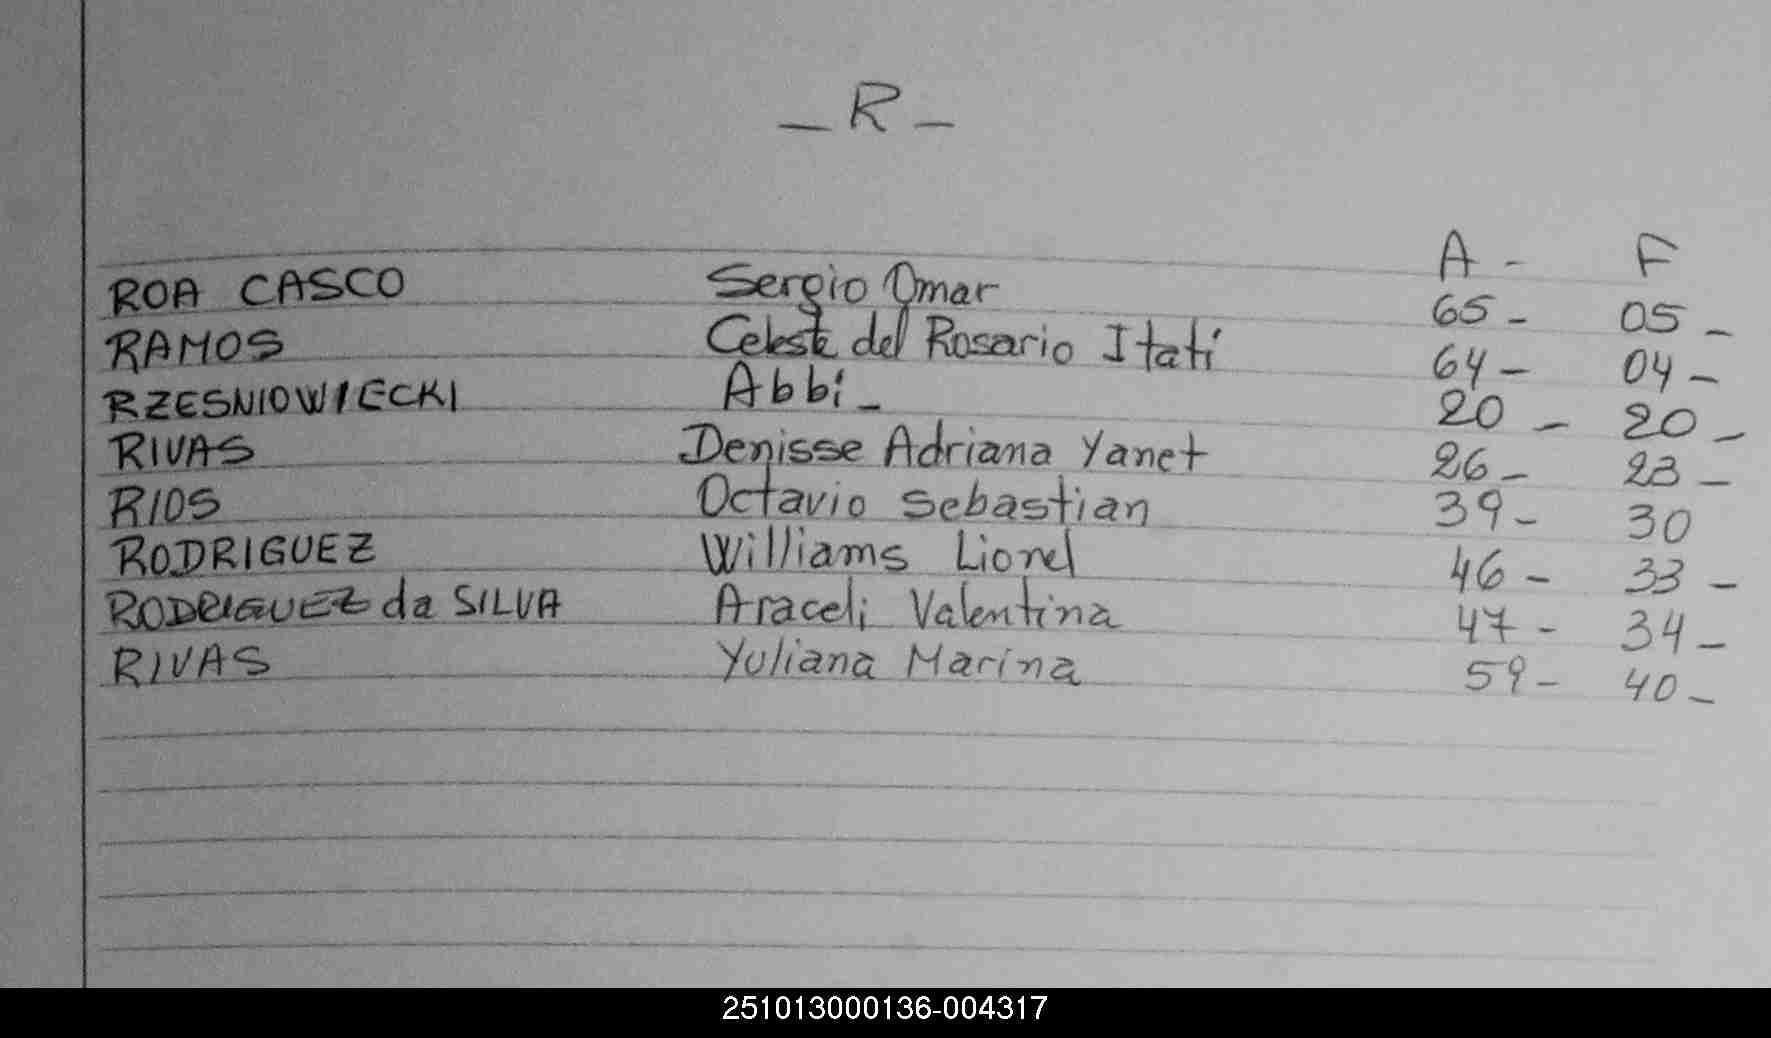 _ R _
A - F
ROA CASCO Sergio Omar 65 - 05 -
RAMOS Celeste del Rosario Itatí 64 - 04 -
RZESNIOWIECKI Abbi - 20 - 20 -
RIVAS Denisse Adriana Yanet 26 - 23 -
RIOS Octavio Sebastian 39 - 30
RODRIGUEZ Williams Lionel 46 - 33 -
RODRIGUEZ da SILVA Araceli Valentina 47 - 34 -
RIVAS Yuliana Marina 59 - 40 -
251013000136-004317